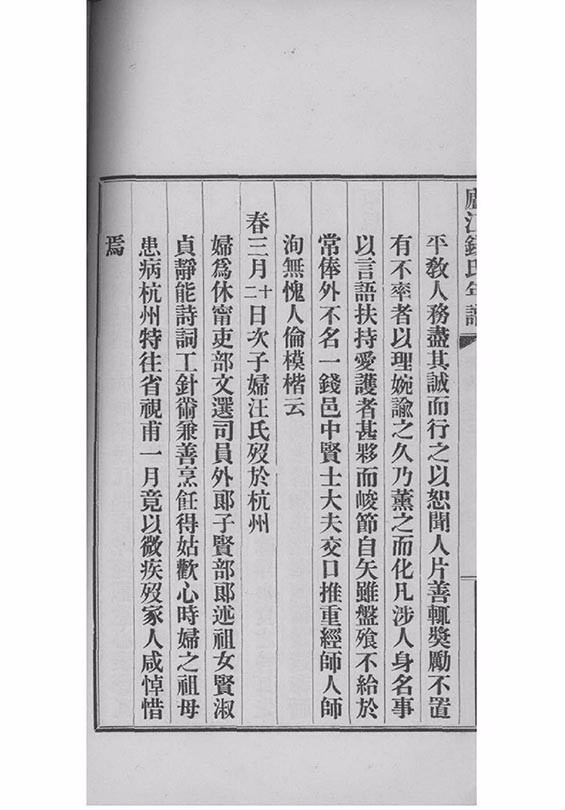 廬江錢氏年譜
平教人務盡其誠而行之以恕聞人片善輒獎勵不置
有不率者以理婉諭之久乃薰之而化凡涉人身名事
以言語扶持愛護者甚夥而峻節自矢雖盤飱不給於
常俸外不名一錢邑中賢士大夫交口推重經師人師
洵無愧人倫模楷云
春三月二十日次子婦汪氏歿於杭州
婦爲休甯吏部文選司員外郎子賢部郎述祖女賢淑
貞靜能詩詞工針黹兼善烹飪得姑歡心時婦之祖母
患病杭州特往省視甫一月竟以微疾歿家人咸悼惜
焉